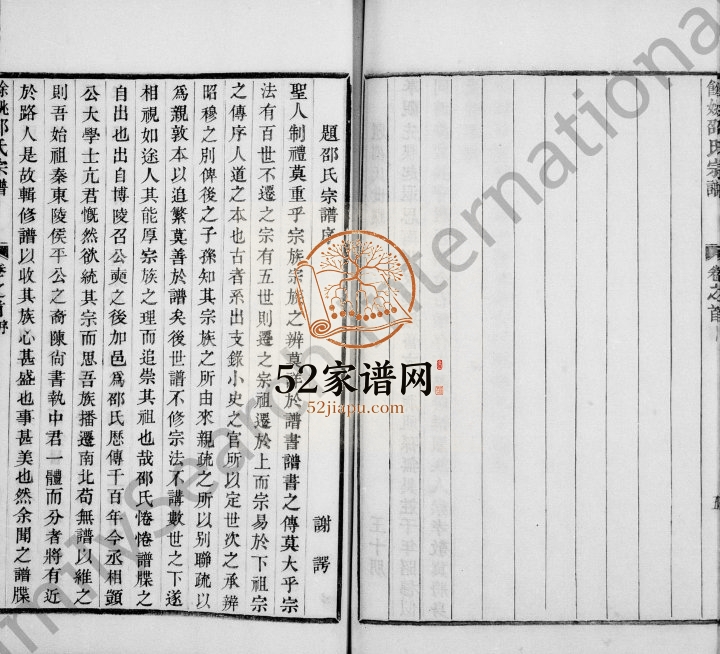 餘姚邵氏宗譜
卷之首
題邵氏宗譜序
謝諤
聖人制禮莫重乎宗族宗族之辨莫詳於譜書譜書之傳莫大乎宗
法有百世不遷之宗有五世則遷之宗祖遷於上而宗易於下祖宗
之傳序人道之本也古者系出支錄小史之官所以定世次之承辨
昭穆之別俾後之子孫知其宗族之所由來親疏之所以別聯疏以
爲親敦本以追繁莫善於譜矣後世譜不修宗法不講數世之下遂
相視如途人其能厚宗族之理而追崇其祖也哉邵氏惓惓譜牒之
自出也出自博陵召公奭之後加邑爲邵氏歷傳千百年今丞相顗
公大學士亢君慨然欲統其宗而思吾族播遷南北苟無譜以維之
則吾始祖秦東陵侯平公之裔陳尙書執中君一體而分者將有近
於路人是故輯修譜以收其族心甚盛也事甚美也然余聞之譜牒
餘姚邵氏宗譜
卷之首 序
52家谱网
52jiapu.com
FamilySearch International